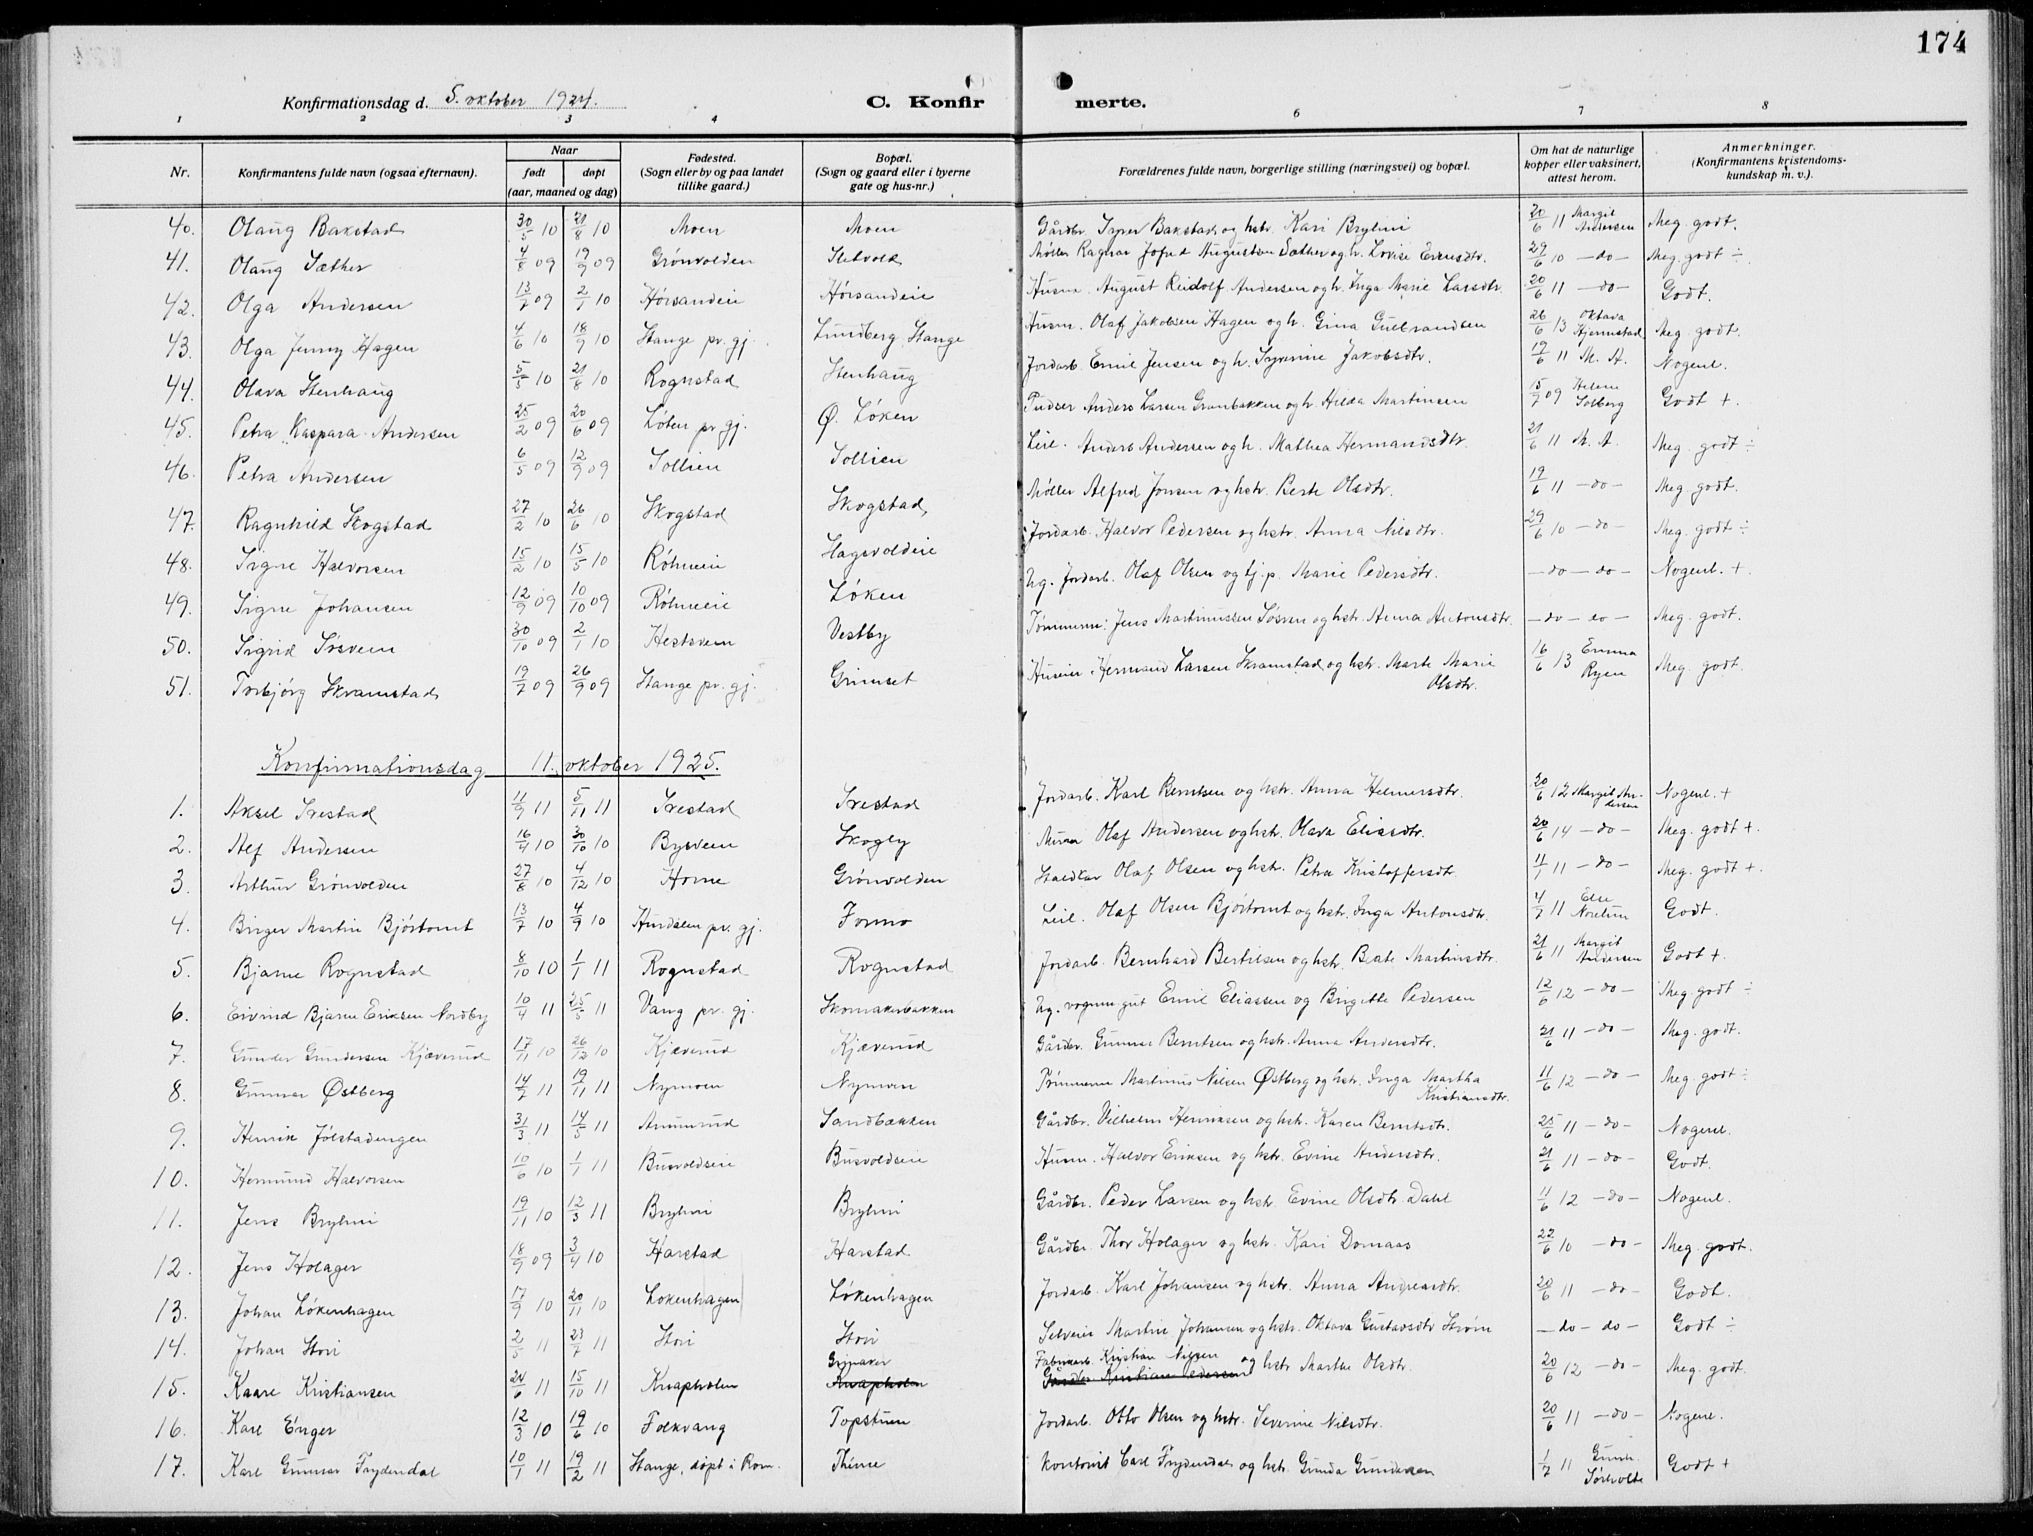 174
Konfirmationsdag d. 5. oktober 1924.
C. Konfir merte.
1 2 3 4 6 7 8
Nr. Konfirmantens fulde navn (ogsaa efternavn). Naar født døpt (aar, maaned og dag) Fødested. (Sogn eller by og paa landet tillike gaard.) Bopæl. (Sogn og gaard eller i byerne gate og hus-nr.) Forældrenes fulde navn, borgerlige stilling (næringsvei) og bopæl. Om hat de naturlige kopper eller vaksinert, attest herom. Anmerkninger. (Konfirmantens kristendoms-kundskap m. v.).
40. Olaug Bakstad 30/5 10 21/8 10 Moen Moen Gårdbr. Bakstad og hstr. Kari Bryhni 20/6 11 Margit Andersen Meg. godt.
41. Olaug Sæther 4/8 09 19/9 09 Grönvolden Sletvold Möller Ragnar Augustsen Sæther og h. Lovise 29/6 10 – do – Meg. godt ÷
42. Olga Andersen 13/7 09 2/1 10 Hörsandeie Hörsandeie Husm. August Rudolf Andersen og h. Inga Marie Larsdtr. 20/6 11 – do – Godt.
43. Olga Jenny Hagen 4/6 10 18/9 10 Stange pr. gj. Lundberg, Stange Husm. Olaf Jakobsen Hagen og h. Gina Gulbrandsen 26/6 13 Oktava Hjermstad Meg. godt.
44. Olava Stenhaug 5/5 10 21/8 10 Rognstad Stenhaug Jordarb. Emil Jensen og h. Syverine Jakobsdtr. 19/6 11 M. A. Nogenl.
45. Petra Kaspara Andersen 25/2 09 20/6 09 Löten pr. gj. Ø. Löken Pudser Anders Larsen Granbakken og h. Hilda Martinsen 15/7 09 Helene Solberg Godt +.
46. Petra Andersen 6/5 09 12/9 09 Sollien Sollien Leil. Anders Andersen og h. Mathea Hermansdtr. 21/6 11 M. A. Meg. godt ÷
47. Ragnhild Skogstad 27/2 10 26/6 10 Skogstad Skogstad Möller Alfred Jonsen og hstr. Berte Olsdtr. 19/6 11 – do – Meg. godt.
48. Signe Halvorsen 15/2 10 15/5 10 Röhneeie Hagevoldeie Jordarb. Halvor Pedersen og hstr. Anna Nilsdtr. 29/6 10 – do – Meg. godt ÷
49. Signe Johansen 12/9 09 10/10 09 Röhneeie Löken Ug. Jordarb. Olaf Olsen og tj. p. Marie Pedersdtr. – do – do – Nogenl. +.
50. Sigrid Sösveen 30/10 09 2/1 10 Hestsveen Vestby Tömmerm. Jens Martinussen Sösveen og hstr. Anna Antonsdtr. – do – do – Meg. godt.
51. Torbjörg Skramstad 19/7 09 26/9 09 Stange pr. gj. Grimset Huseier Herman Larsen Skramstad og hstr. Marte Marie Olsdtr. 16/6 13 Emma Ryen Meg. godt.
Konfirmationsdag 11. oktober 1925.
1. Aksel Svestad 11/9 11 5/11 11 Svestad Svestad Jordarb. Karl Berntsen og hstr. Anna Helmersdtr. 20/6 12 Margit Andersen Nogenl. +
2. Alf Andersen 16/4 10 30/10 10 Bysveen Skogly Murer Olaf Andersen og hstr. Olava Eliasdtr. 20/6 14 – do – Meg. godt +.
3. Arthur Grönvolden 27/8 10 4/12 10 Horne Grönvolden Staldkar Olaf Olsen og hstr. Petra Kristoffersdtr. 4/7 11 – do – Meg. godt +.
4. Birger Martin Björtomt 13/7 10 4/9 10 Hurdalen pr. gj. Formo Leil. Olaf Olsen Björtomt og hstr. Inga Antonsdtr. 4/7 11 Else Norlin Godt.
5. Bjarne Rognstad 8/10 10 1/1 11 Rognstad Rognstad Jordarb. Bernhard Bertilsen og hstr. Beate Martinsdtr. 21/6 11 Margit Andersen Godt +.
6. Eivind Bjarne Eriksen Nordby 10/4 11 25/5 11 Vang pr. gj. Skomakerbakken Ug. vognm. gut Emil Eliassen og Birgitte Pedersen 12/6 12 – do – Meg. godt ÷
7. Gunder Gundersen Kjæverud 17/11 10 26/12 10 Kjæverud Kjæverud Gårdbr. Gunnar Berntsen og hstr. Anna Andersdtr. 21/6 11 – do – Meg. godt.
8. Gunnar Østberg 14/7 11 19/11 11 Nymoen Nymoen Tömmerm Martinus Nilsen Østberg og hstr. Inga Martha Kristiansdtr. 11/6 12 – do – Meg. godt ÷
9. Henrik Jölstadengen 31/3 11 14/5 11 Ammerud Sandbakken Gårdbr. Vilhelm Henriksen og hstr. Karen Berntsdtr. 25/6 11 – do – Nogenl.
10. Hermund Halvorsen 10/6 10 1/1 11 Busvoldeie Busvoldseie Husm. Halvor Eriksen og hstr. Evine Andersdtr. 21/6 11 – do – Godt.
11. Jens Bryhni 19/11 10 12/3 11 Bryhni Bryhni Gårdbr. Peder Larsen og hstr. Evine Olsdtr. Dahl 11/6 12 – do – Nogenl.
12. Jens Holager 18/9 09 3/4 10 Harstad Harstad Gårdbr. Thor Holager og hstr. Kari Domaas 22/6 10 – do – Meg. godt.
13. Johan Lökenhagen 17/9 10 20/11 10 Lökenhagen Lökenhagen Jordarb. Karl Johansen og hstr. Anna Andreasdtr. 20/6 11 – do – Godt.
14. Johan Stori 2/5 11 23/7 11 Stori Stori Selveier Martin Johansen og hstr. Oktava Gustavsdtr. Ström – do – do – Godt ÷
15. Kaare Kristiansen 24/6 11 15/10 11 Knapholen Knapholen Fabrikarb. Kristian Nilsen og hstr. Marthe Olsdtr. Gårdbr. Kristian Pedersen 20/6 12 – do – Meg. godt.
16. Karl Enger 12/3 10 19/6 10 Folkvang Topstuen Jordarb. Otto Olsen og hstr. Severine Nilsdtr. 20/6 11 – do – Nogenl.
17. Karl Gunnar Frydendal 10/1 11 19/2 11 Stange, döpt i Rom. Thime Kontorist Carl Frydendal og hstr. Gunda Gundersen 1/7 11 Gunh. Sörholte Godt +